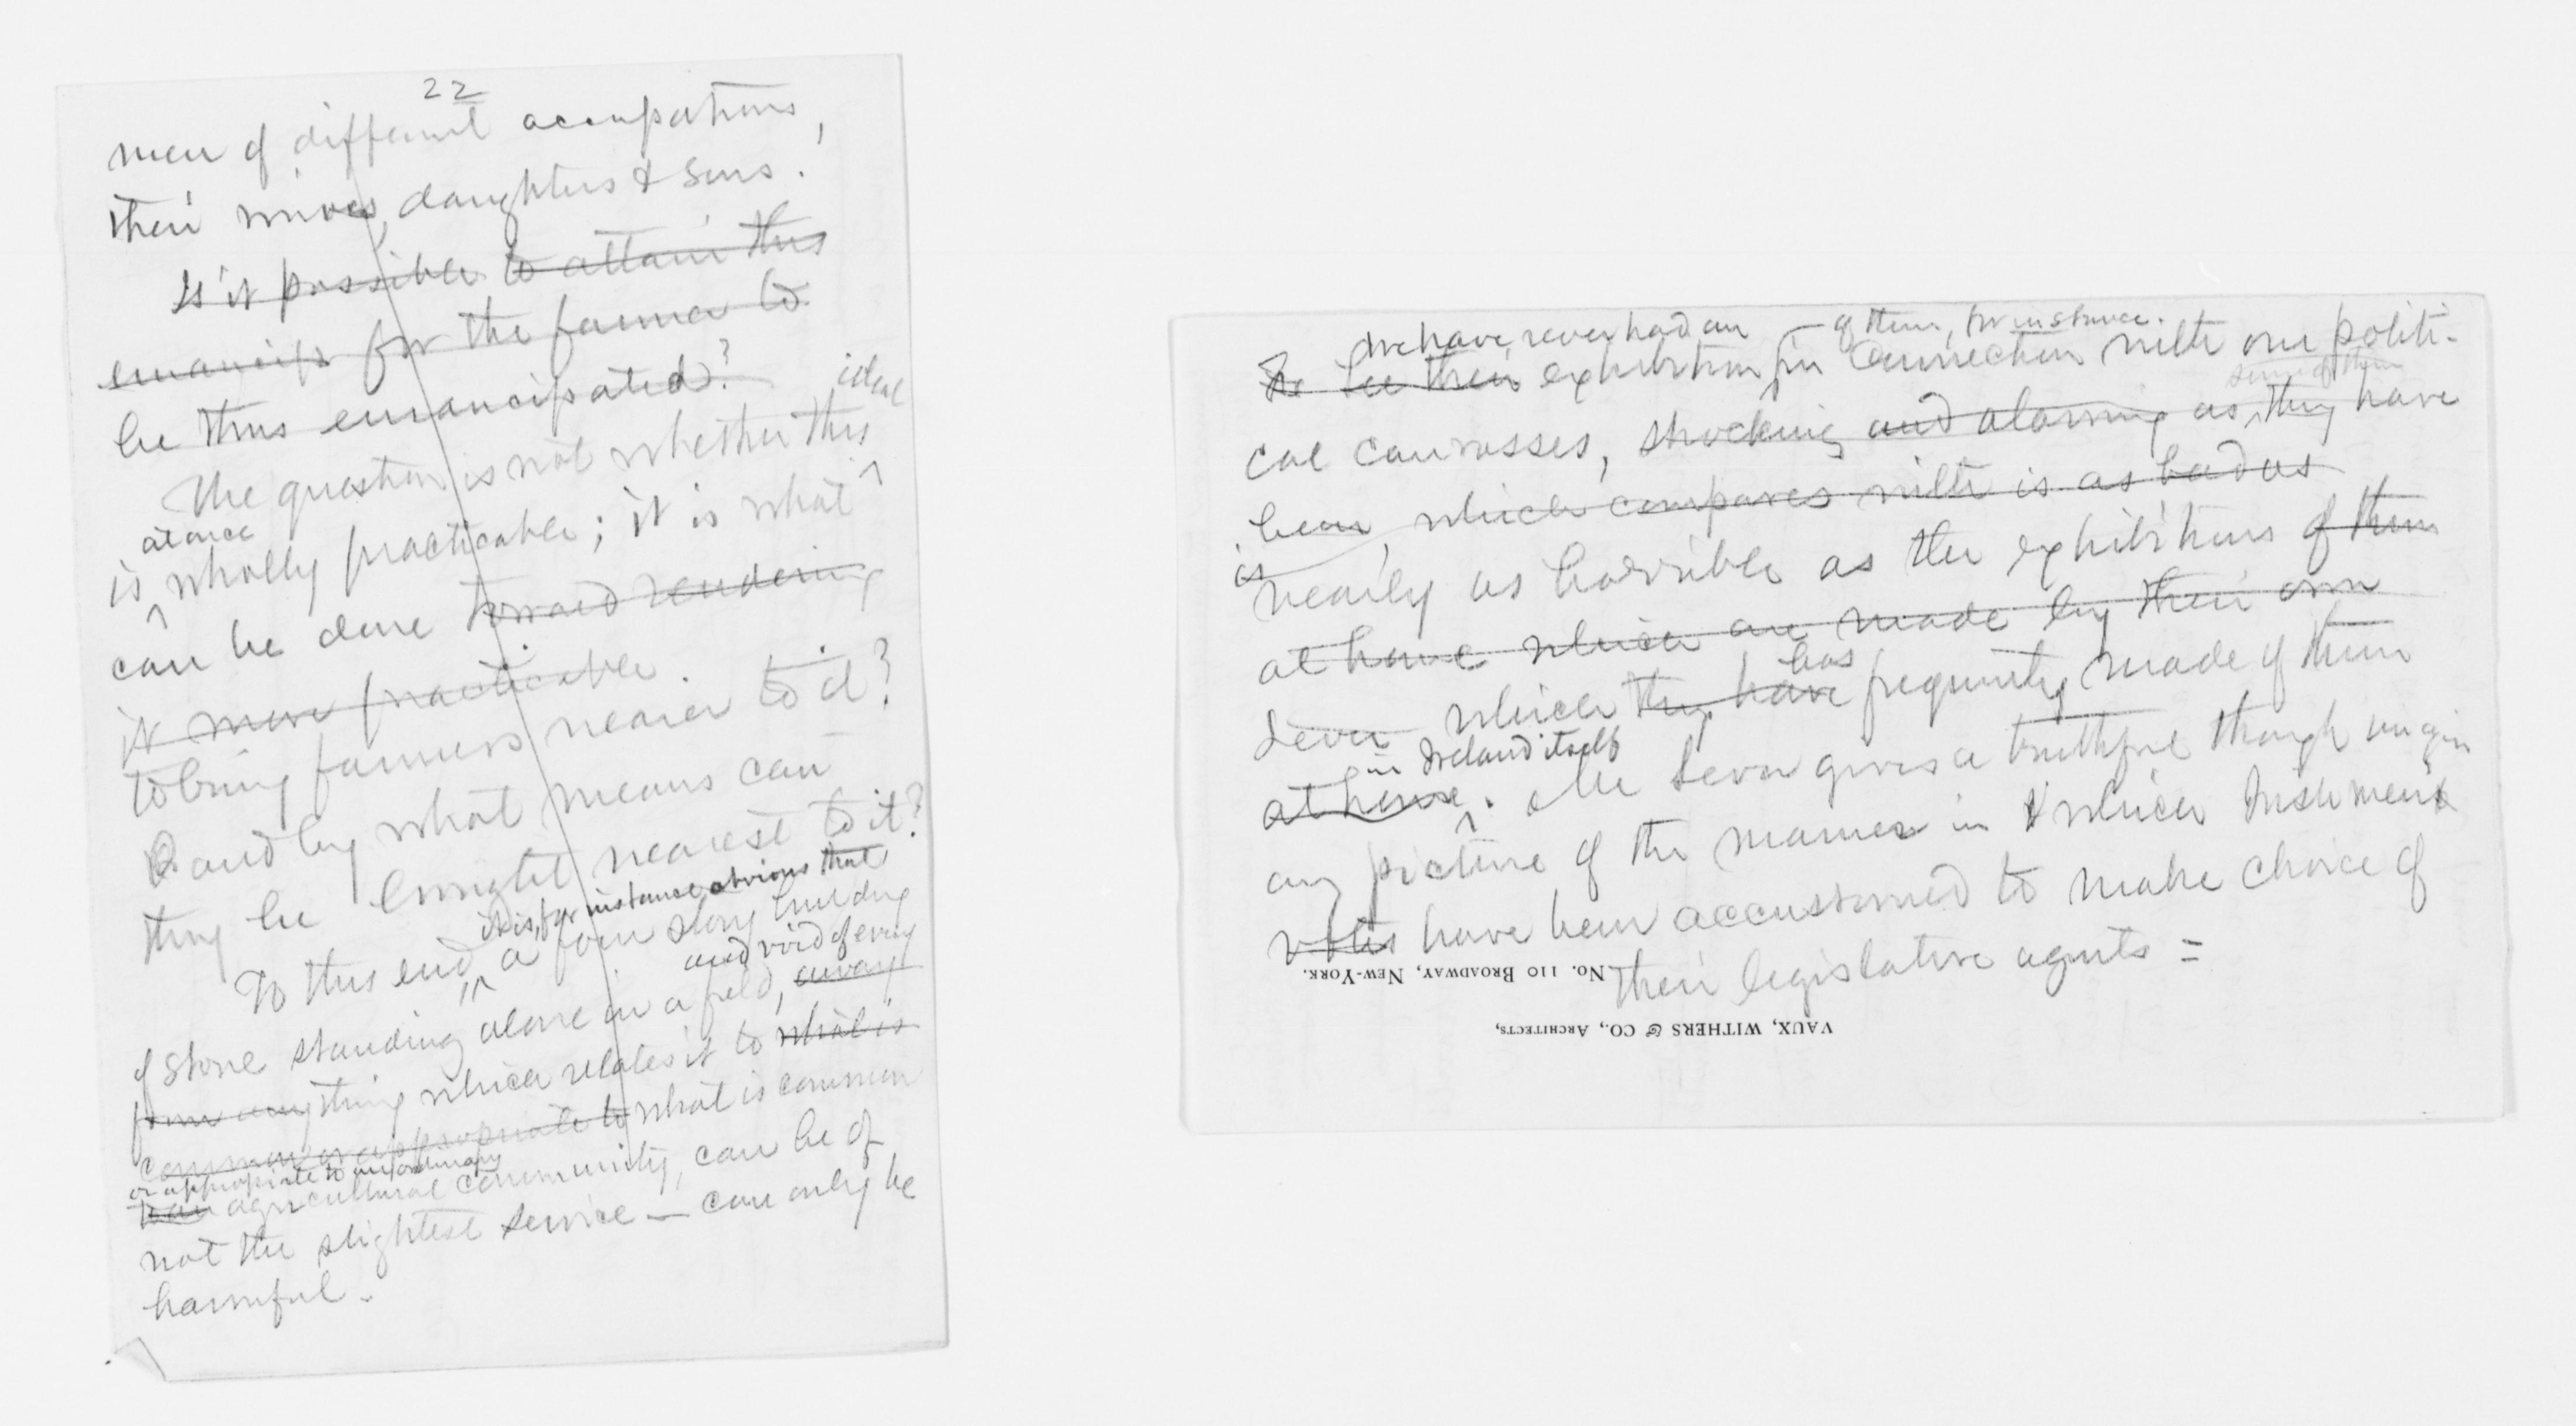 22
men of different occupations,
their wives, daughters & sons.
Is it possible to attain this
emancip for the farmer to
be thus emancipated?
ideal
The question is not whether this
at once
is wholly practicable; it is what
can be done toward rendering
it more practicable.
to bring farmers nearer to it?
& and by what means can
they be brought nearest to it?
it is, for instance obvious that
To this end a four story building
and void of every
of stone standing alone in a field, away
from anything which relates it to what is
common or appropriate to what is common
or appropriate to an ordinary
to an agricultural community, can be of
not the slightest service — can only be
harmful.
We have never had an of them, for instance.
To see their exhibition in connection with our politi-
some of them
cal canvasses, shocking and alarming as they have
been, which compares with is as bad as
is
nearly as horrible as the exhibitions of them
at home which are made by their own
has
Lever which they have frequently made of them
in Ireland itself
at home. Mr Lever gives a truthful though
picture of the manner in which Irishmen
have been accustomed to make choice of
their legislative agents =
No. 110 Broadway, New-York.
VAUX, WITHERS & CO., Architects,